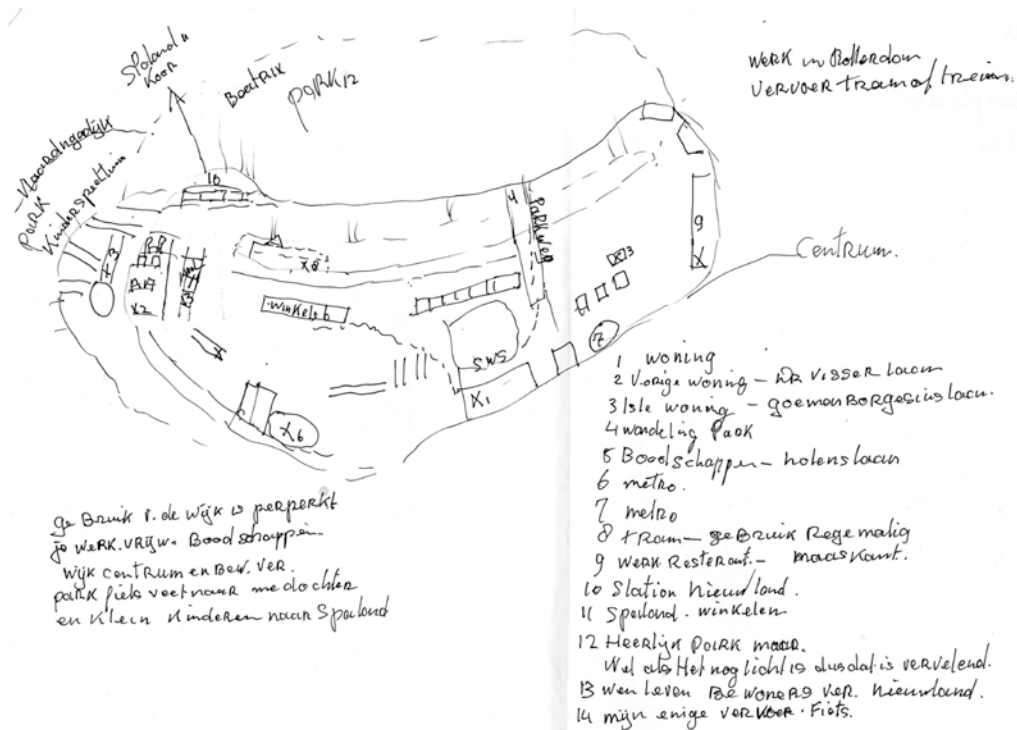 SPoland 11
Koor
Beatrix
PARK 12
WERK in Rotterdam
VERVOER tram of trein
Noordngedijk
PARK
Kinderspeeltuin
10
4
PARKWEG
9
X
Centrum.
X3
X8
13
X2
Winkels 6
7
SWS
X1
X6
1 woning
2 Vorige woning - WR VISSER Laan
3 1ste woning - goemanBorgesius laan.
4 wandeling PARK
5 Boodschappen - nolenslaan
6 metro.
7 metro
8 tRam - geBruik Regemalig
9 WERK. RESTERANT. - MAASKANT.
10 Station Nieuwland.
11 Speiland. winkelen
12 HEERLIJK PARK maar.
Wel als HET nog licht is dus dat is vervelend.
13 wen Leven BEWONERS VER. Nieuwland.
14 mijn enige VERVOER. Fiets.
geBruik v. de wijk is perperkt
je WERK. VRIJW. Boodschappen.
wijk centrum en Bew. VER.
park fiets veel naar me dochter
en Klein Kinderen naar Speiland